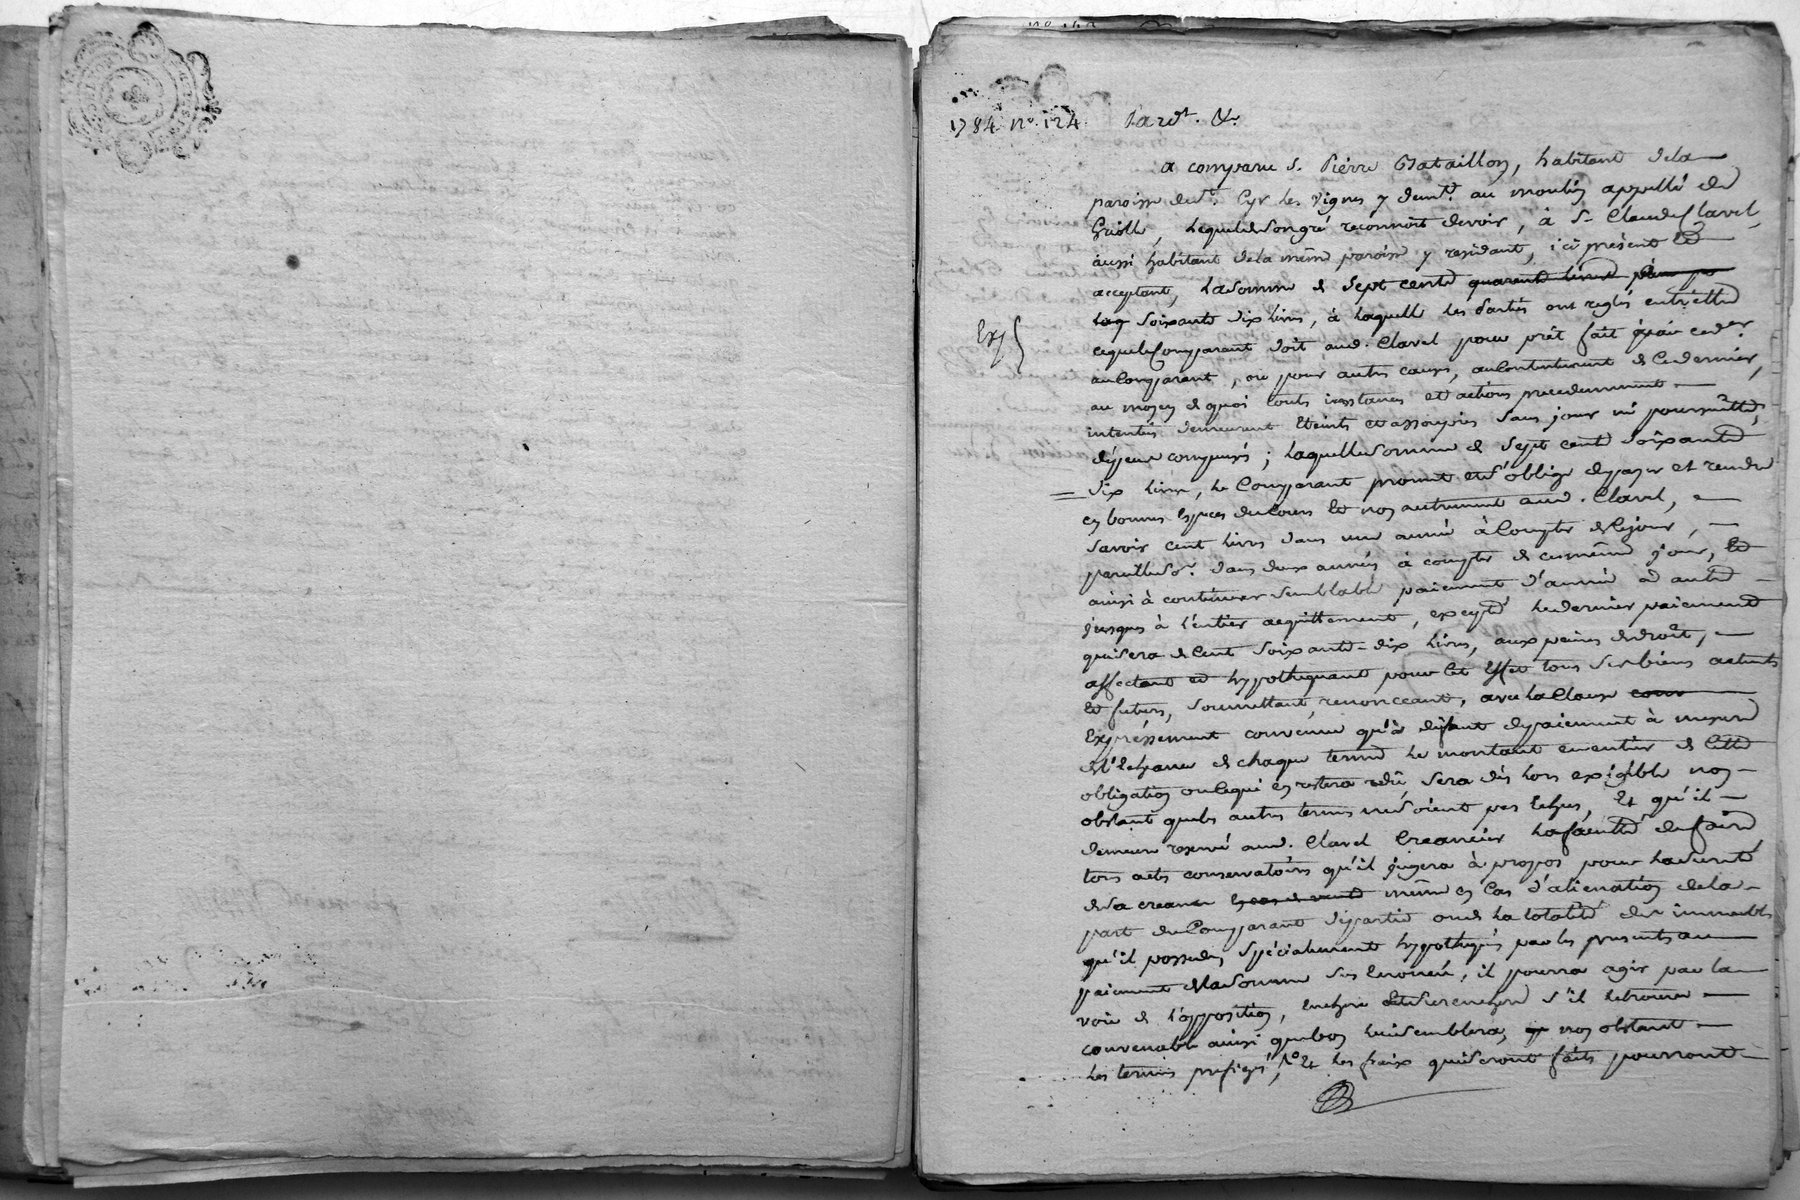 1784 nº. 124. Pardt. &.
a comparu s. Pierre Bataillon, habitant dela
paroisse de st. Cyr les Vignes y demt. au moulin appellé de
Griolle, lequel de son gré reconnoit devoir, à s. Claude Clavel
aussi habitant dela même paroisse y residant, ici présent et
acceptant, la somme de sept cents quarante livres
soixante dix livres, à laquelle les parties ont reglé entr'elles
Exp
ce que le Comparant doit aud. Clavel pour prêt fait par ce der.
au Comparant, ou pour autres causes, au Contentement de Ce dernier,
au moyen de quoi touts instances et actions precedemment
intentés demeurent Eteints et assoupies sans jour ni poursuittes,
dépens compensés ; laquelle somme de sept cents soixante
dix livres, le Comparant promet et s'oblige de payer et rendre
en bonnes Espèces du Cours et non autrement aud. Clavel,
savoir cent livres dans une année à Compter de Ce jour,
pareille so. dans deux années à compter de ce même jour, et
ainsi à continuer semblable paiement d'année à autre
jusques à l'entier acquittement, excepté le dernier paiement
qui sera de Cent soixante-dix livres, aux peines de droit,
affectant et hypothequant pour Cet Effet tous ses biens actuels
et futurs, soumettant, renonceant, avec la Clause
Expréssement convenue qu'à défaut de paiement à mesure
de l'Echeance de chaque terme le montant en entier de Cette
obligation ou Ce qui en restera redû, sera dès lors exigible non
obstant que les autres termes ne soient pas Echus, Et qu'il
demeure reservé aud. Clavel Creancier la faculté de faire
tous acts conservatoires qu'il jugera à propos pour la sureté
de sa creance même en Cas d'alienation dela
part du Comparant de partie ou de la totalité des immeubles
qu'il possede, spécialement hypothequés par les presents au
paiement de la somme sus Enoncée, il pourra agir par la
voie de l'opposition, Enchere et surenchere s'il le trouve
convenable ainsi que bon lui semblera, non obstant
les termes prefigés, Et les fraix qui seront faits pourront